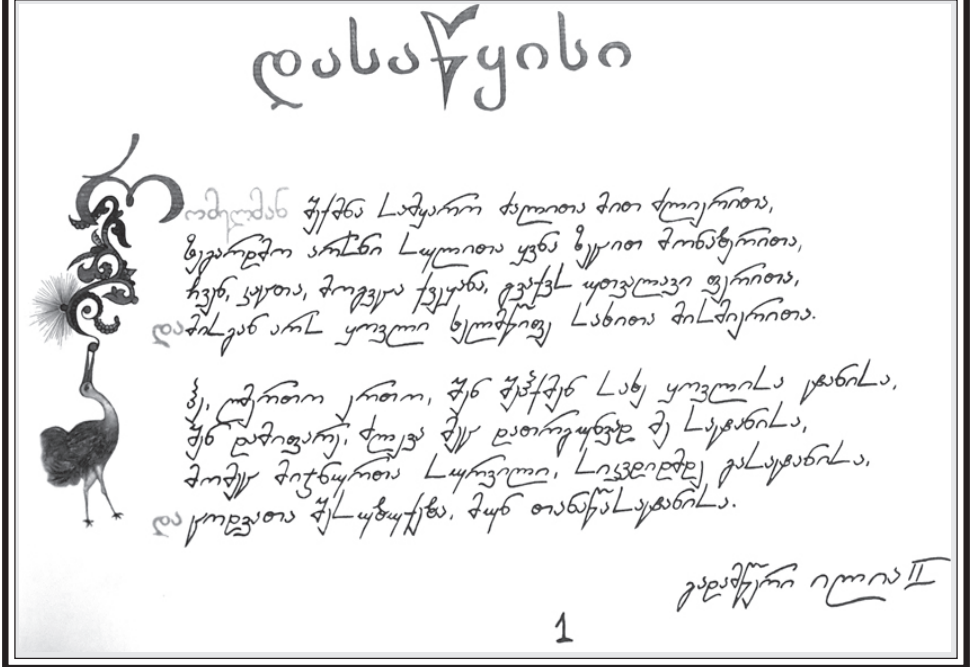 დასაწყისი
რომელმან შექმნა სამყარო ძალითა მით ძლიერითა,
ზეგარდმო არსნი სულითა ყვნა ზეცით მონაბერითა,
ჩვენ, კაცთა, მოგვცა ქვეყანა, გვაქვს უთვალავი ფერითა,
და მისგან არს ყოვლი ხელმწიფე სახითა მის მიერითა.
ჰე, ღმერთო ერთო, შენ შეჰქმენ სახე ყოვლისა ტანისა,
შენ დამიფარე, ძლევა მეც დათრგუნვად მე სატანისა,
მომეც მიჯნურთა სურვილი, სიკვდიდმდე გასატანისა,
და ცოდვათა შესუბუქება, მუნ თანაწასატანისა.
გადამწერი ილია II
1